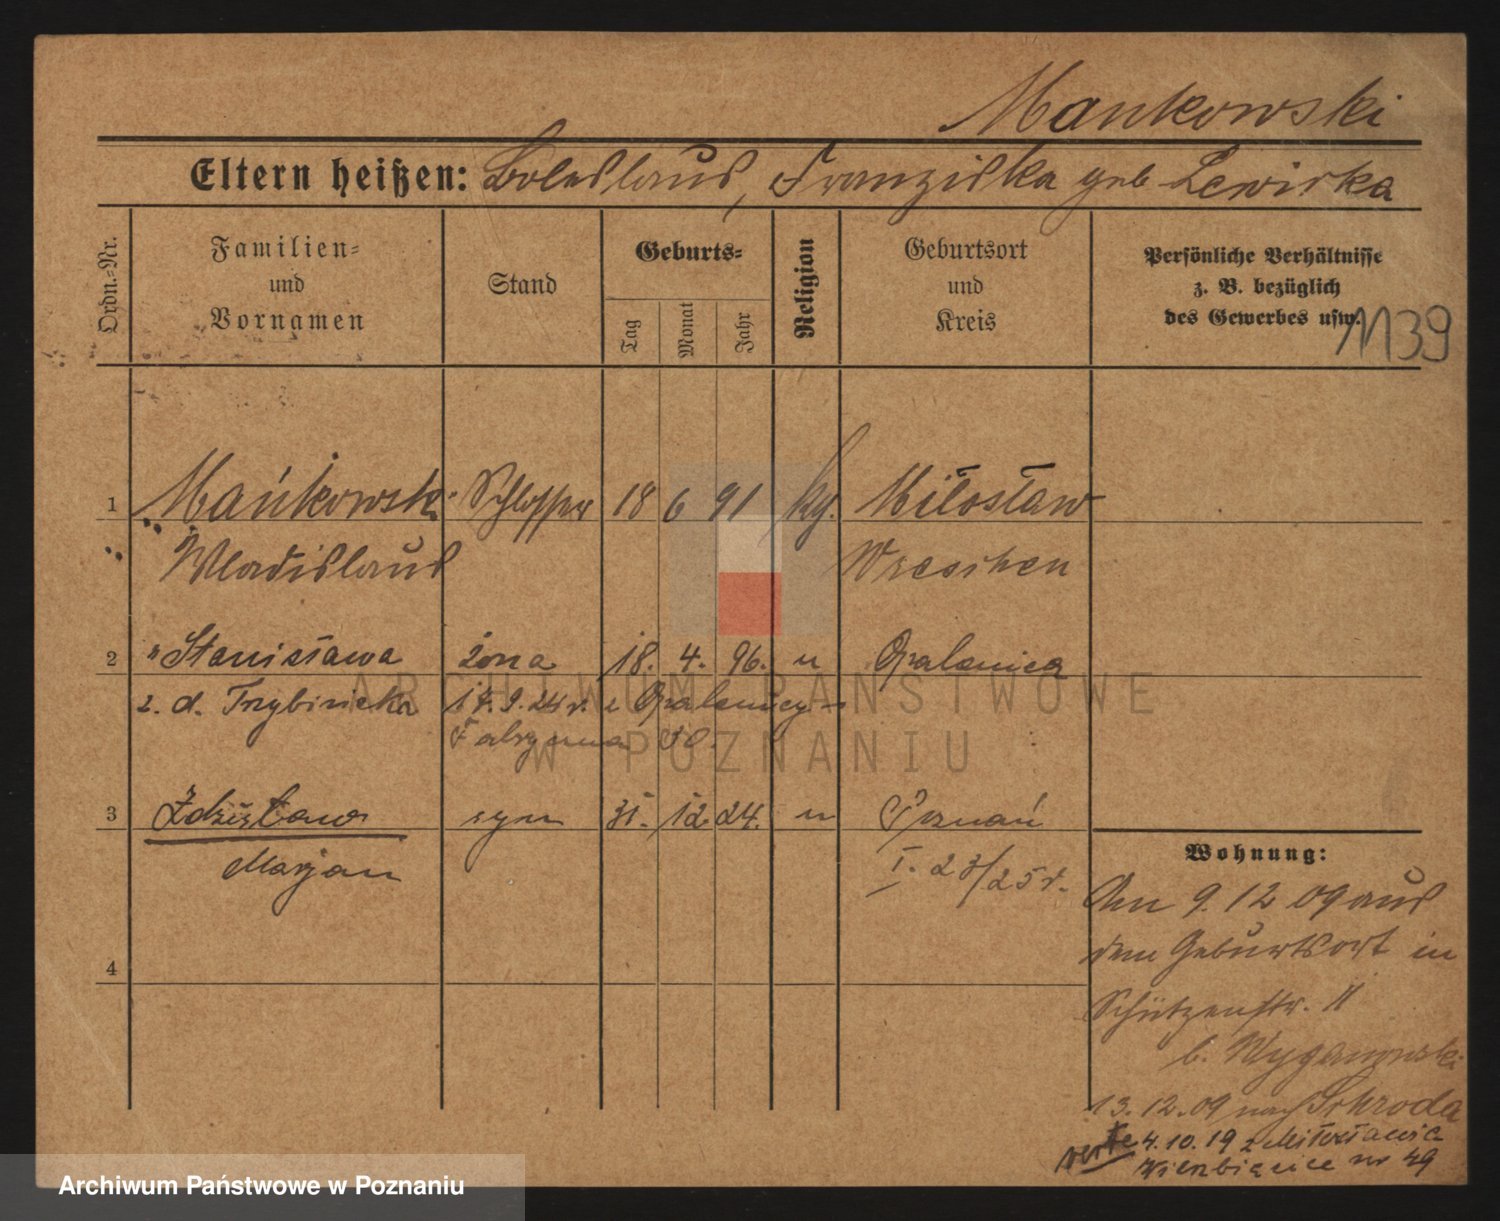 Mankowski
Eltern heißen: Boleslaus, Franziska geb Lewicka
Ordn.-Nr.
Familien-
und
Vornamen
Stand
Geburts-
Tag
Monat
Jahr
Religion
Geburtsort
und
Kreis
Persönliche Verhältnisse
z. B. bezüglich
des Gewerbes usw.
1139
1 Mańkowski Schlosser 18 6 91 kg. Miłosław
Wladislaus Wreschen
2 " Stanisława żona 18. 4. 96. " Opalenica
z. d. Trybińska 17. 9. 24 r. z Opalenicy
3 Zdzisław syn 31. 12 24. " Poznań
Marjan I. 23/25 r.
4
Wohnung:
Am 9. 12 09 aus
dem Geburtsort in
Schützenstr. 11
b. Wyganowski
13. 12. 09 nach Schroda
verte 4. 10. 19 z Miłosławia
Wierzbięcice nr 49
ARCHIWUM PAŃSTWOWE
W POZNANIU
Archiwum Państwowe w Poznaniu